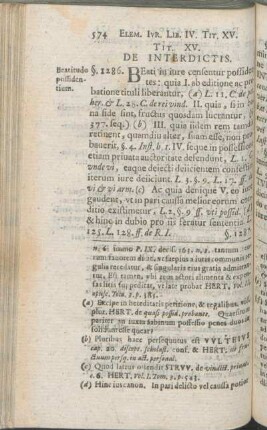 574 ELEM. IVR. LIB. IV. TIT. XV.
TIT. XV.
DE INTERDICTIS.
Beatitudo
possiden-
tium.
§. 1286. BEati in iure censentur possiden-
tes: quia I. ab editione ac pro-
batione tituli liberantur, (a) L. 11. C. de
her. & L. 28. C. de rei vind. II. quia, si in
na fide sint, fructus quosdam lucrantur,
377. seq.) (b) III. quia iisdem rem tamdiu
retinent, quamdiu alter, suam esse, non pro-
bauerit, §. 4. Inst. h. t. IV. seque in possessione
etiam priuata auctoritate defendunt, L. 1.
unde vi, eaque deiecti deiicientem
iterum iure deiiciunt. L. 3. §. 9. L. 17. ff.
vi & vi arm. (c) Ac quia denique V. eo iure
gaudent, vt in pari caussa melior eorum con-
ditio existimetur, L. 2. §. 9 ff. vti possid.
& hinc in dubio pro iis feratur sententia.
125. L. 128. ff. de R. I. §. 128
P. IX. decis. 163. n. 2. tantum
gulis recedatur, & singularis eius gratia admitta-
tur. Et tamen, vbi
factis sit preditat, vt late probat HERT, vol. I.
opusc. Tom. 2. p. 385.
(a) Excipe in hereditatis petitione, & regalibus,
HERT. de quasi possid. probante.
pariter an iuxta tabernam possessio penes
esse queat?
(b) Pluribus haec persequutus est VVLTEIVS
cap. 20. & HERT,
in act. personal.
(c) Quod latius ostendit STRVV. de vindict. priuata
c. 6. HERT, vol. I. Tom. 2. p. 523.
(d) Hinc ius canon. In pari delicto vel caussa potior